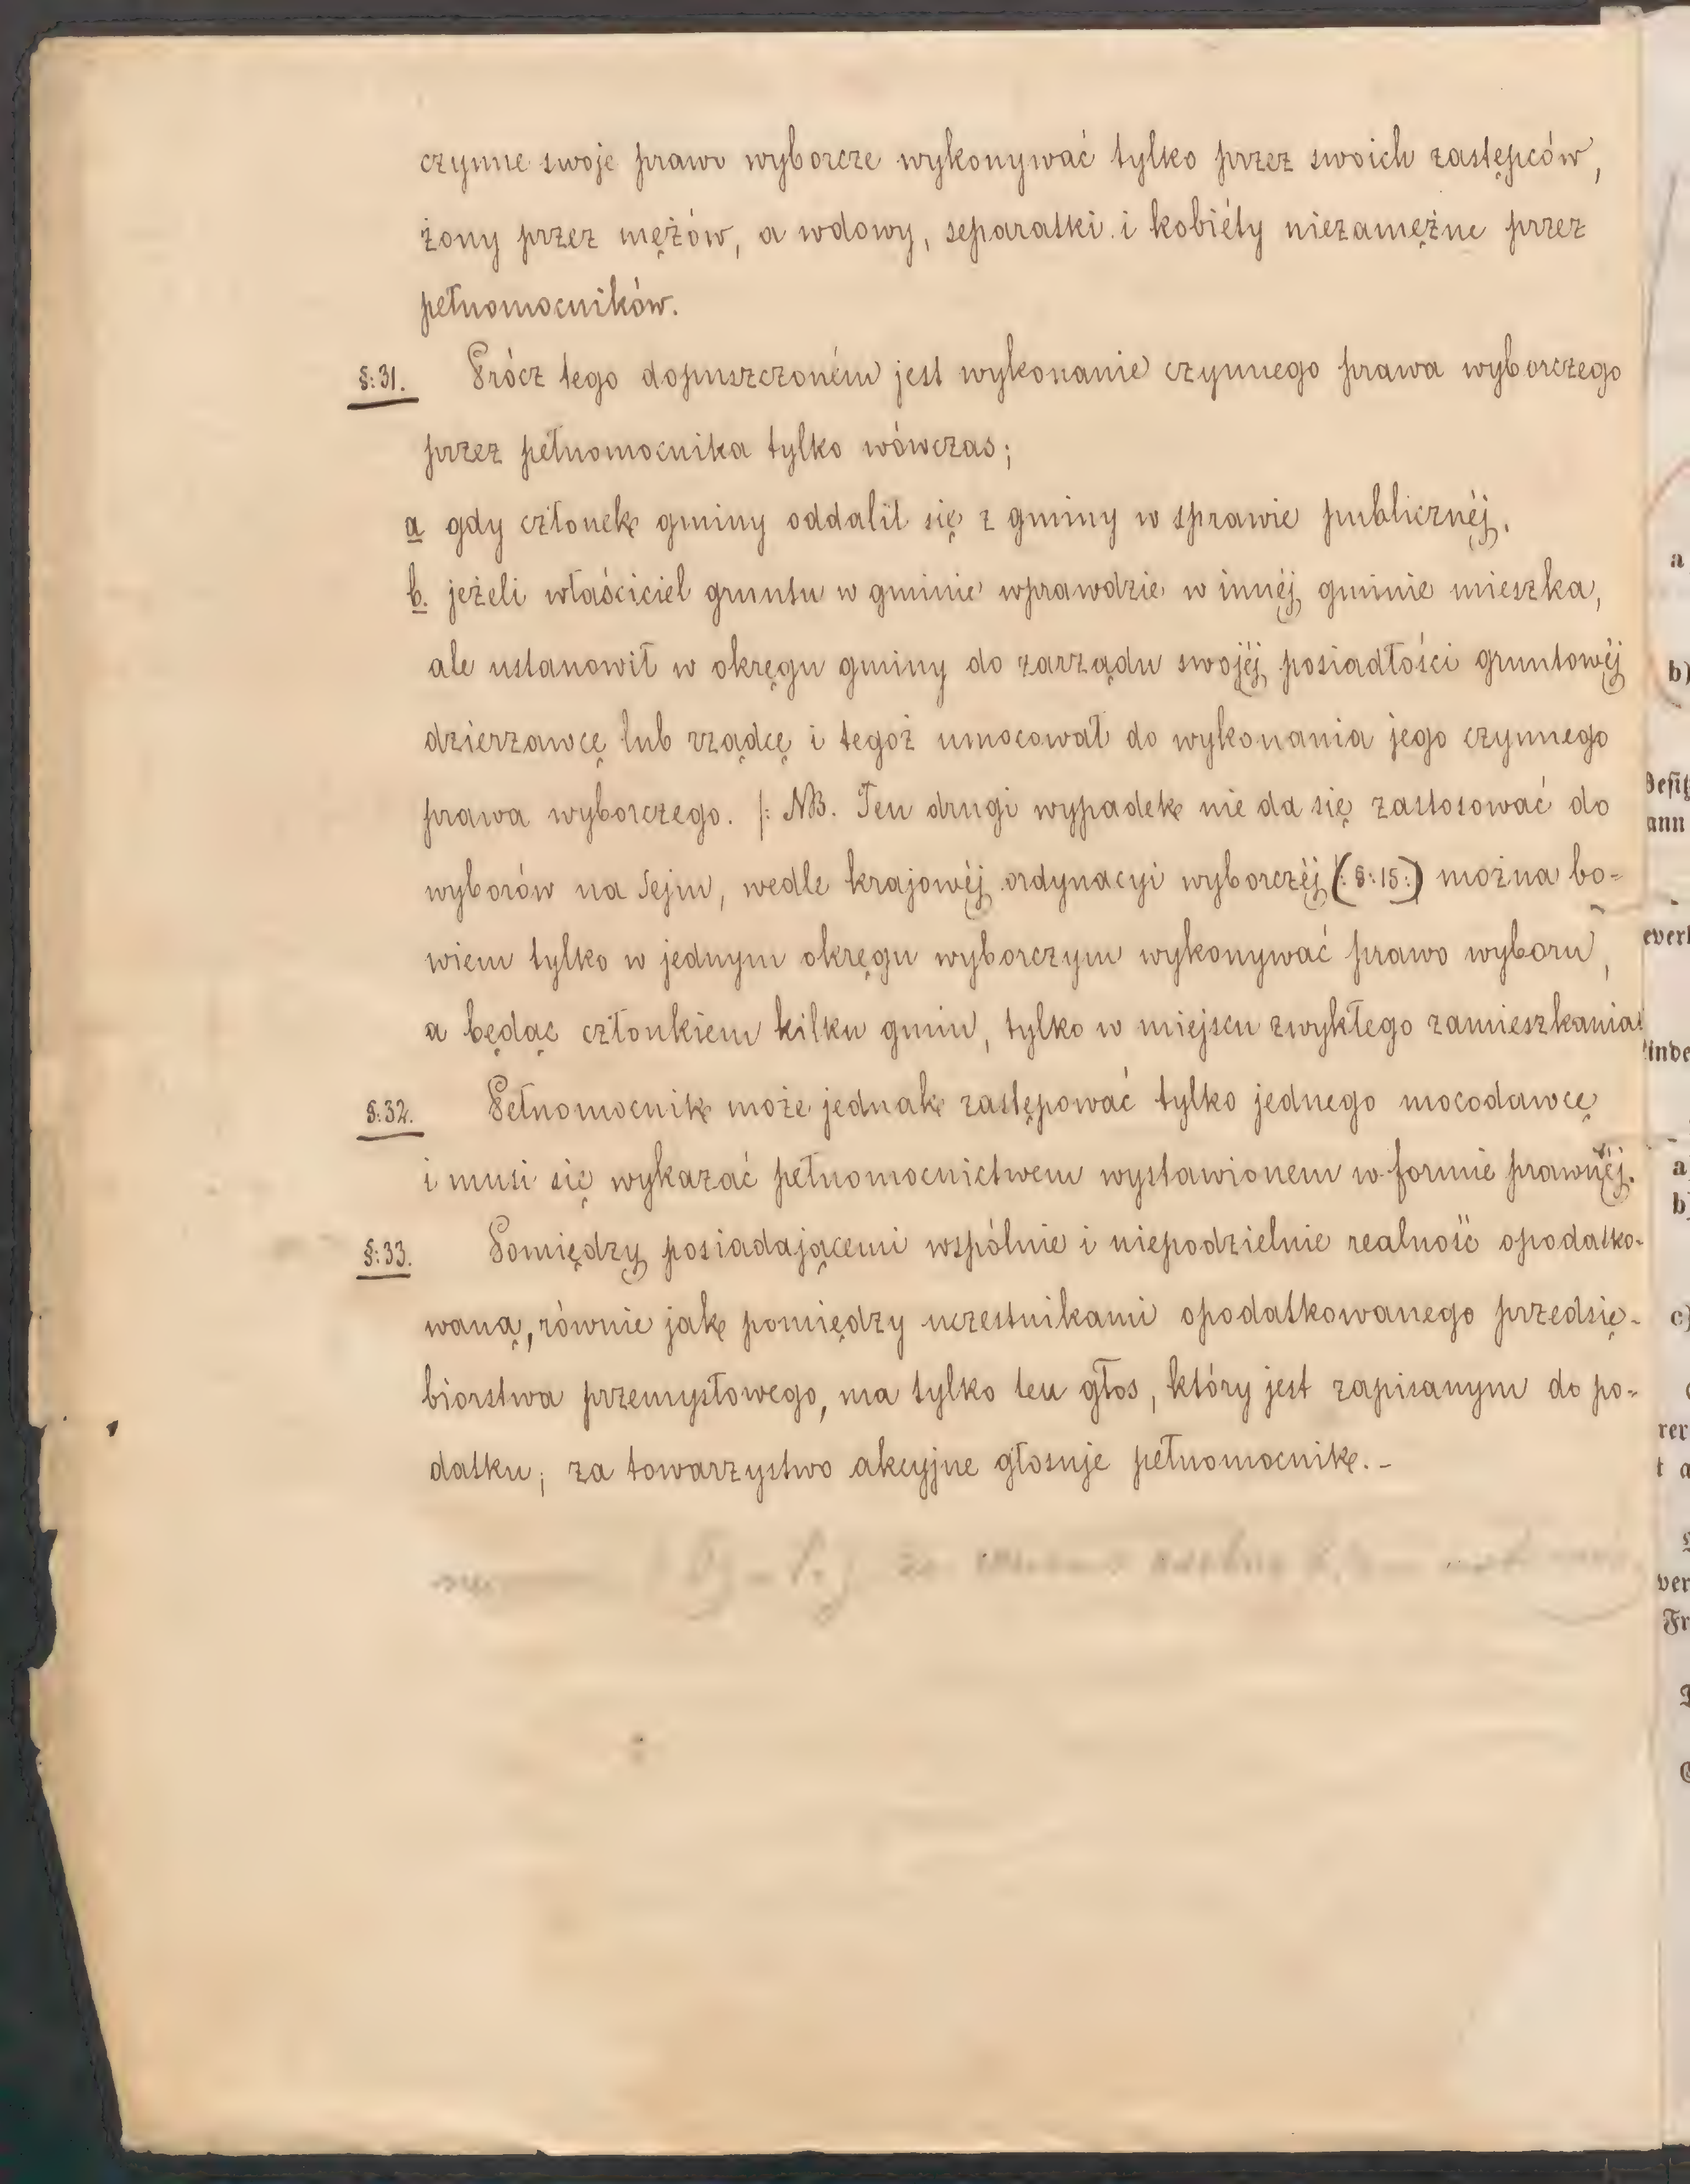 czynne swoje prawo wyborcze wykonywać tylko przez swoich zastępców,
żony przez mężów, a wdowy, separatki i kobiéty niezamężne przez
pełnomocników.
§:31. Prócz tego dopuszczoném jest wykonanie czynnego prawa wyborczego
przez pełnomocnika tylko wówczas;
a gdy członek gminy oddalił się z gminy w sprawie publicznéj.
b. jeżeli właściciel gruntu w gminie wprawdzie w innéj gminie mieszka,
ale ustanowił w okręgu gminy do zarządu swojéj posiadłości gruntowéj
dzierzawcę lub rządcę i tegoż umocował do wykonania jego czynnego
prawa wyborczego. /: NB. Ten drugi wypadek nie da się zastosować do
wyborów na Sejm, wedle krajowéj ordynacyi wyborczéj (:§:15:) można bo-
wiem tylko w jednym okręgu wyborczym wykonywać prawo wyboru,
a będąc członkiem kilku gmin, tylko w miejscu zwykłego zamieszkania
§:32. Pełnomocnik może jednak zastępować tylko jednego mocodawcę
i musi się wykazać pełnomocnictwem wystawionem w formie prawnéj.
§:33. Pomiędzy posiadającemi wspólnie i niepodzielnie realność opodatko-
waną, równie jak pomiędzy uczestnikami opodatkowanego przedsię-
biorstwa przemysłowego, ma tylko ten głos, który jest zapisanym do po-
datku; za towarzystwo akcyjne głosuje pełnomocnik.-
a
b)
ann
a
b)
c)
ver
Fr